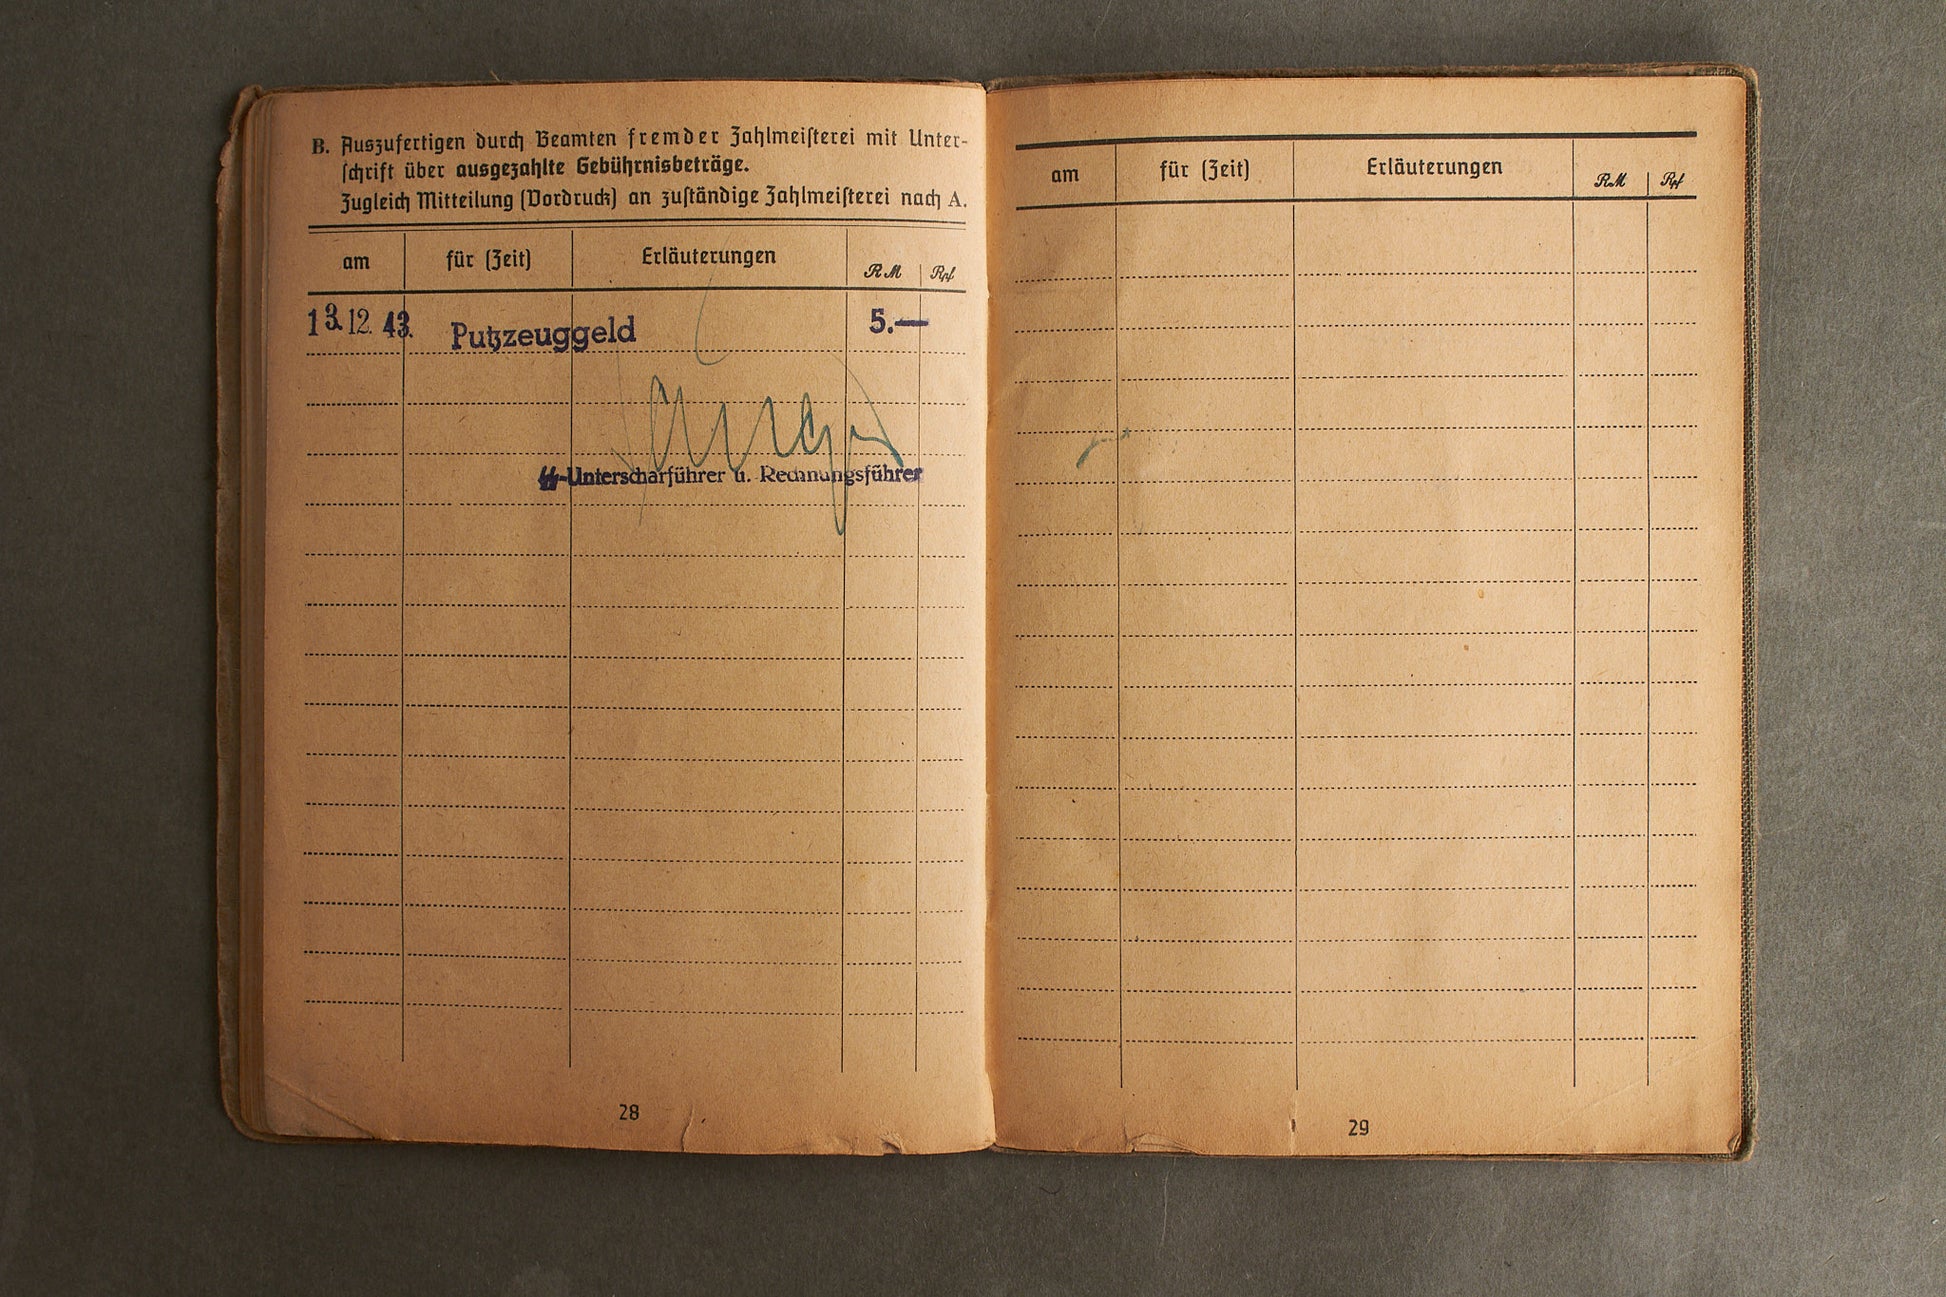 B. Auszufertigen durch Beamten fremder Zahlmeisterei mit Unter-
schrift über ausgezahlte Gebührnisbeträge.
Zugleich Mitteilung (Vordruck) an zuständige Zahlmeisterei nach A.
am für (Zeit) Erläuterungen RM Rpf
13.12.43. Putzzeuggeld 5.—
SS-Unterscharführer u. Rechnungsführer
28
am für (Zeit) Erläuterungen RM Rpf
29